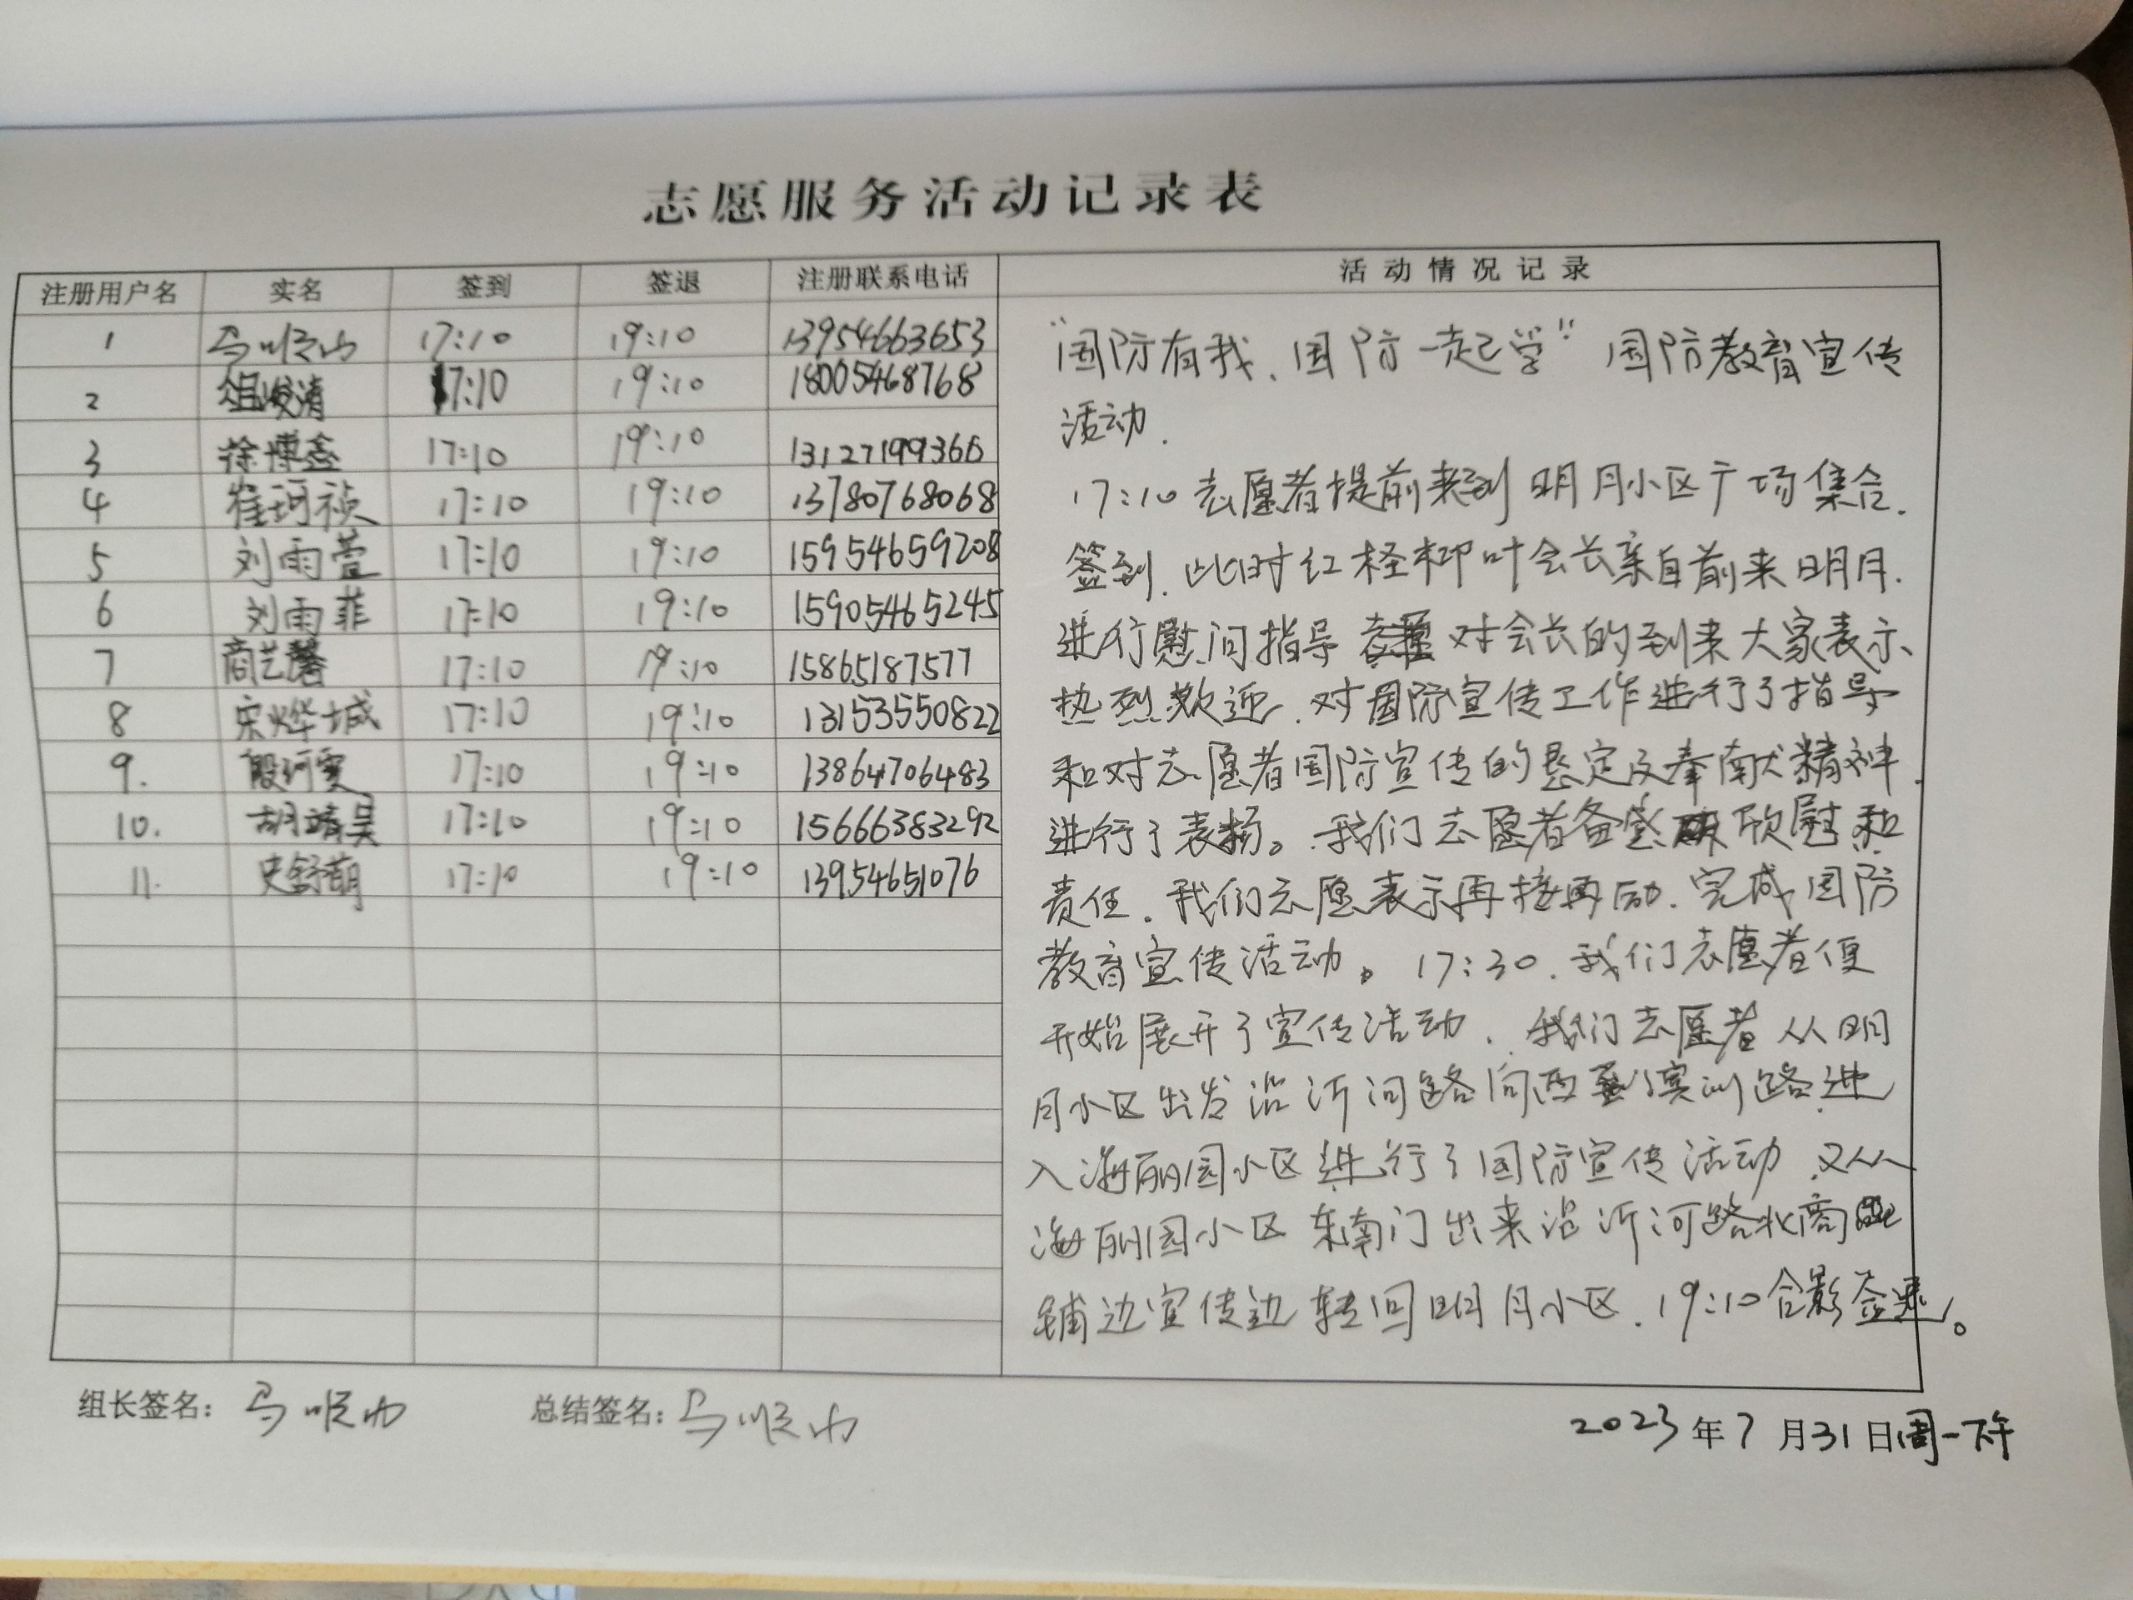 志愿服务活动记录表
注册用户名 实名 签到 签退 注册联系电话 活动情况记录
1 马顺山 17:10 19:10 13954663653
2 俎峻清 17:10 19:10 18005468768
3 徐博鑫 17:10 19:10 13127199366
4 崔珂祯 17:10 19:10 13780768068
5 刘雨萱 17:10 19:10 15954659208
6 刘雨菲 17:10 19:10 15905465245
7 商艺馨 17:10 19:10 15865187577
8 宋烨城 17:10 19:10 13153550822
9. 殷珂雯 17:10 19:10 13864706483
10. 胡靖昊 17:10 19:10 15666383292
11. 史舒萌 17:10 19:10 13954651076
“国防有我、国防一起学”国防教育宣传
活动.
17:10志愿者提前来到明月小区广场集合.
签到.此时红柽柳叶会长亲自前来明月.
进行慰问指导 对会长的到来大家表示
热烈欢迎.对国防宣传工作进行了指导
和对志愿者国防宣传的恳定及奉献精神.
进行了表扬。我们志愿者备 欣慰和
责任.我们志愿表示再接再励.完成国防
教育宣传活动。17:30.我们志愿者便
开始展开了宣传活动.我们志愿者从明
月小区出发沿沂河路向西 路进
入海丽园小区进行了国防宣传活动.又从
海丽园小区东南门出来沿沂河路北商
铺边宣传边转回明月小区.19:10合影签退。
组长签名:马顺山 总结签名:马顺山
2023年7月31日周一下午